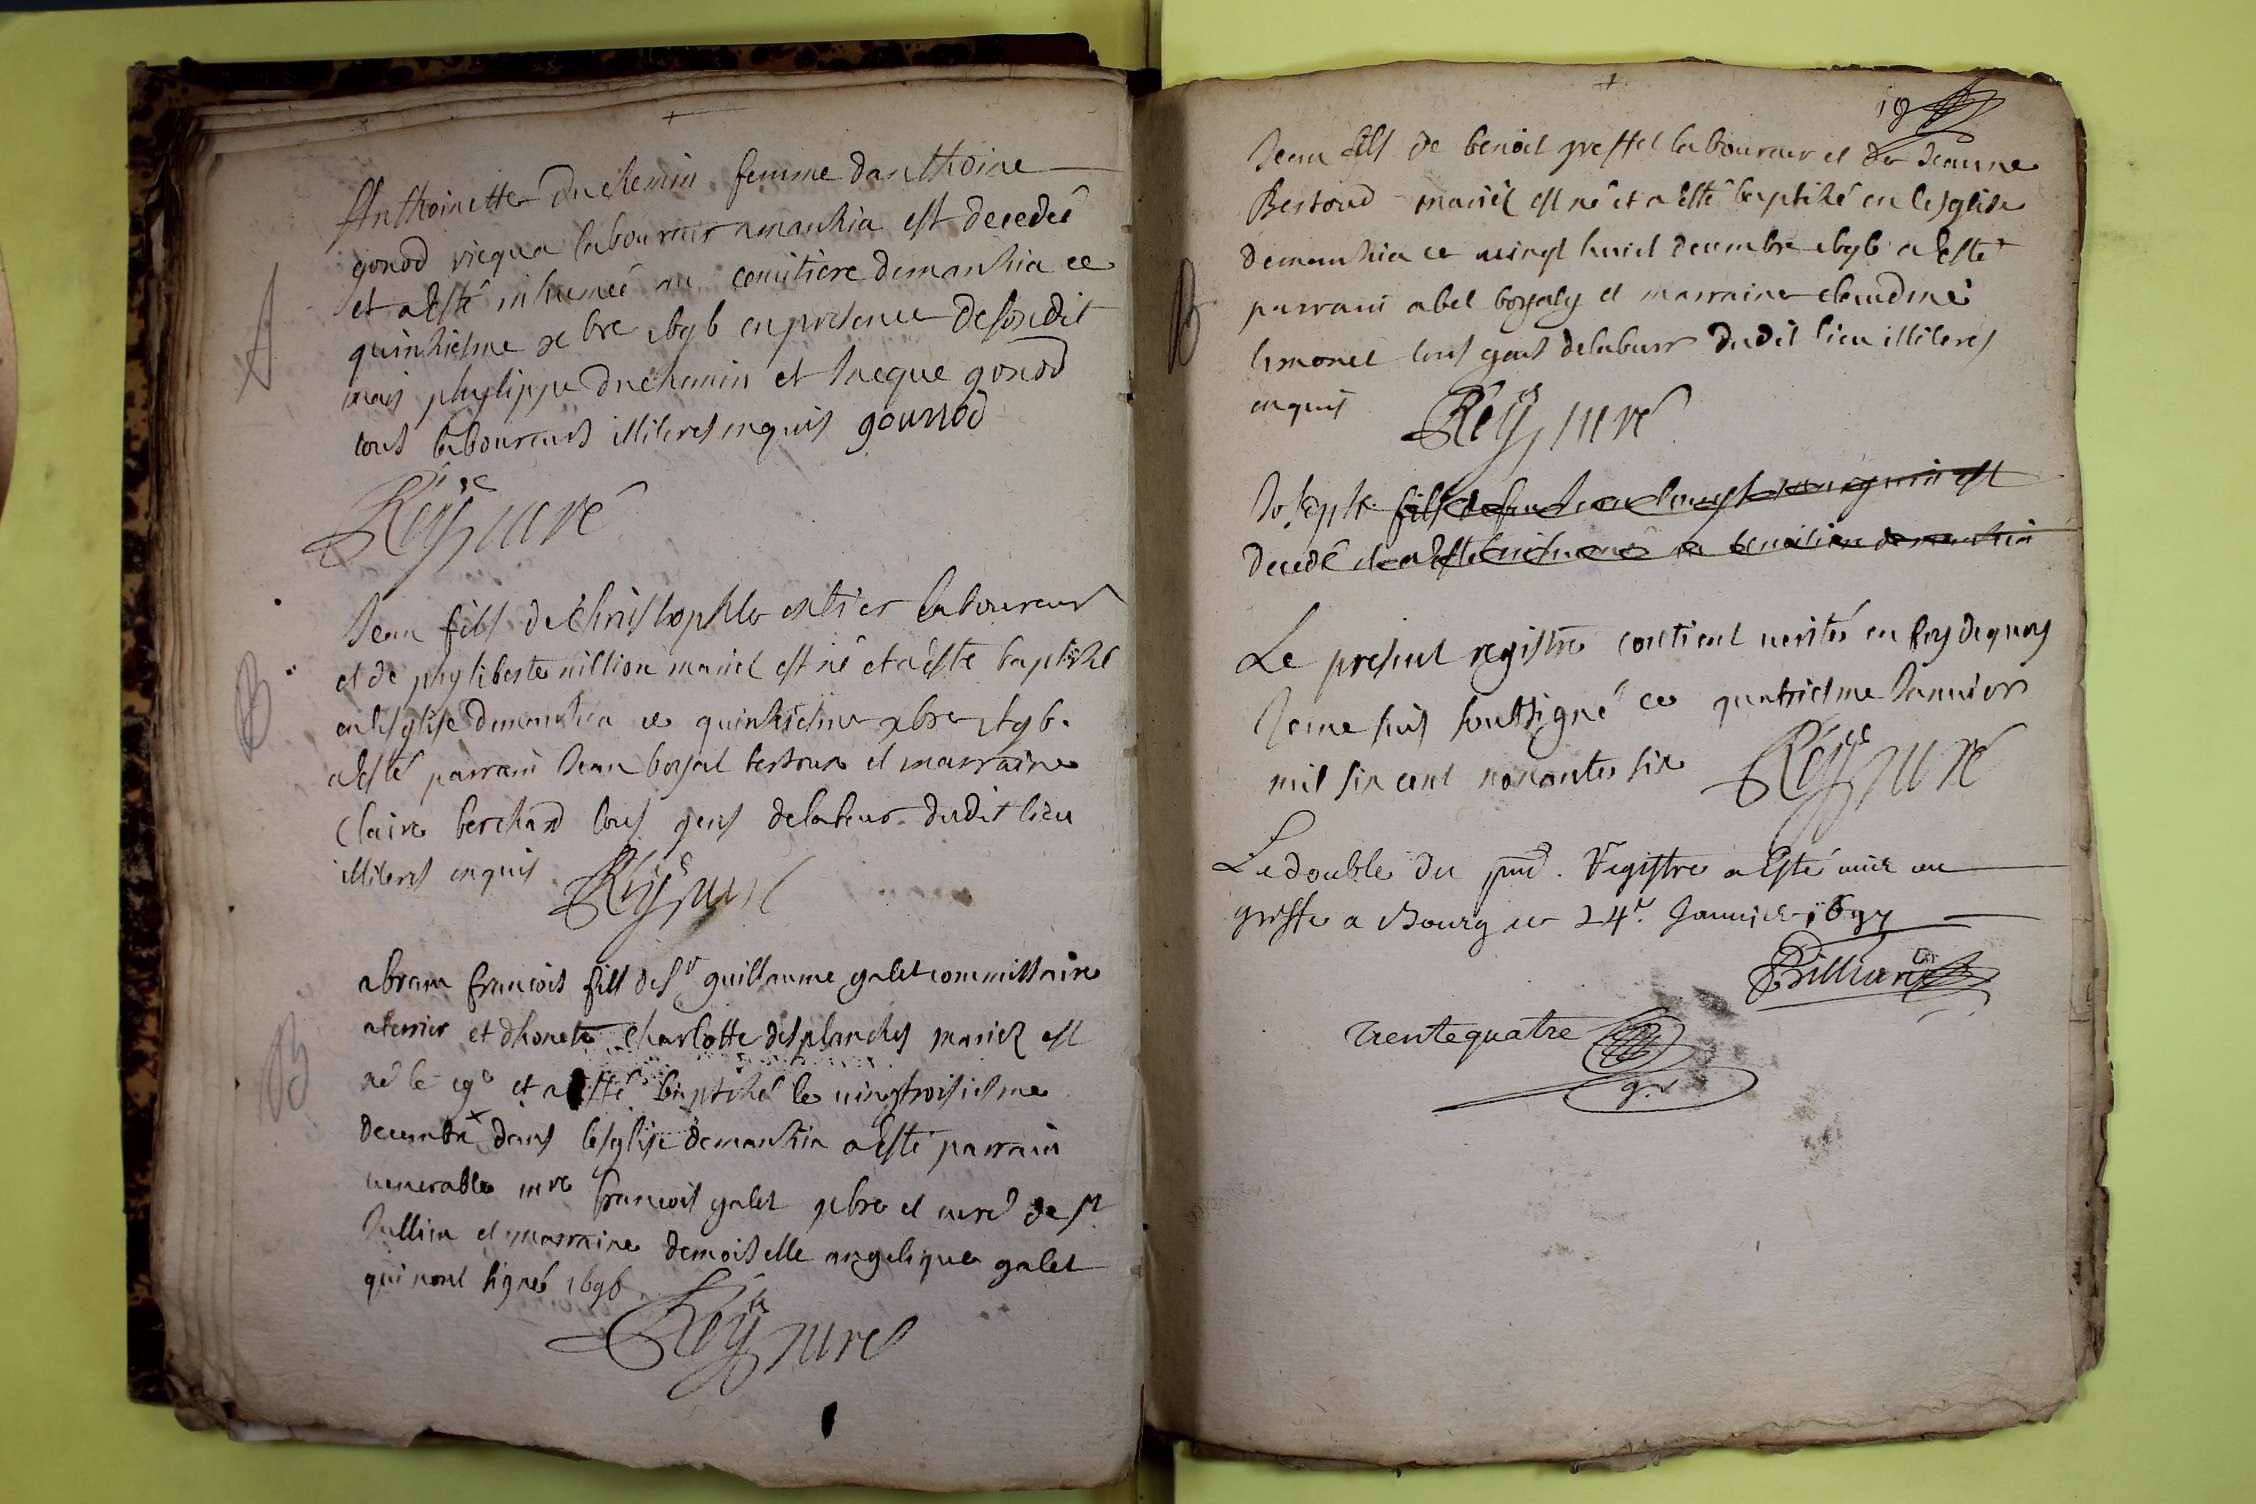 Anthoinette duchemin femme danthoine
gonod vicqua laboureur a manthia est decedeé
et a esté inhumeé au cemitiere de manthia ce
quinziesme xbre 1696 en presence de sondit
mari phylippe duchemin et Jacque gonod
tous laboureurs illiteres enquis gounod
Rey curé
B
Jean fils de Christophle laboureur
et de phyliberte million mariez est né et a esté baptizé
en lesglise de manthia ce quinziesme xbre 1696
a esté parrain Jean borjat et marraine
Claire berchard tous gens de labeur dudit lieu
illiteres enquis Rey curé
B
abram francois fils de sr guillaume galet commissaire
a terrier et dhonete Charlotte desplanches mariez est
né le et a esté baptizé le vingtroisiesme
decembre dans lesglise de manthia a esté parrain
venerable mre francois galet pbre et curé de st
Jullien et marraine demoiselle angelique galet
qui nont signés 1696
Rey curé
Jean fils de benoit greffet laboureur et de Jeanne
Bertoud mariéz est né et a esté baptizé en lesglise
de manthia ce vingt huict decembre 1696 a esté
parrain abel borjaly et marraine claudine
limonet tous gens de labeur dudit lieu illiteres
enquis
Rey curé
B
Joseph fils de feu est
decedé et a esté inhumé au cemitiere de manthia
Le present registre contient verité en foy de quoy
Je me suis soubsigné ce quatriesme Janvier
mil six cent nonante six Rey curé
Le double du pnt. Registre a Esté mis au
greffe a Bourg ce 24e. Janvier 1697
Brillian
trente quatre